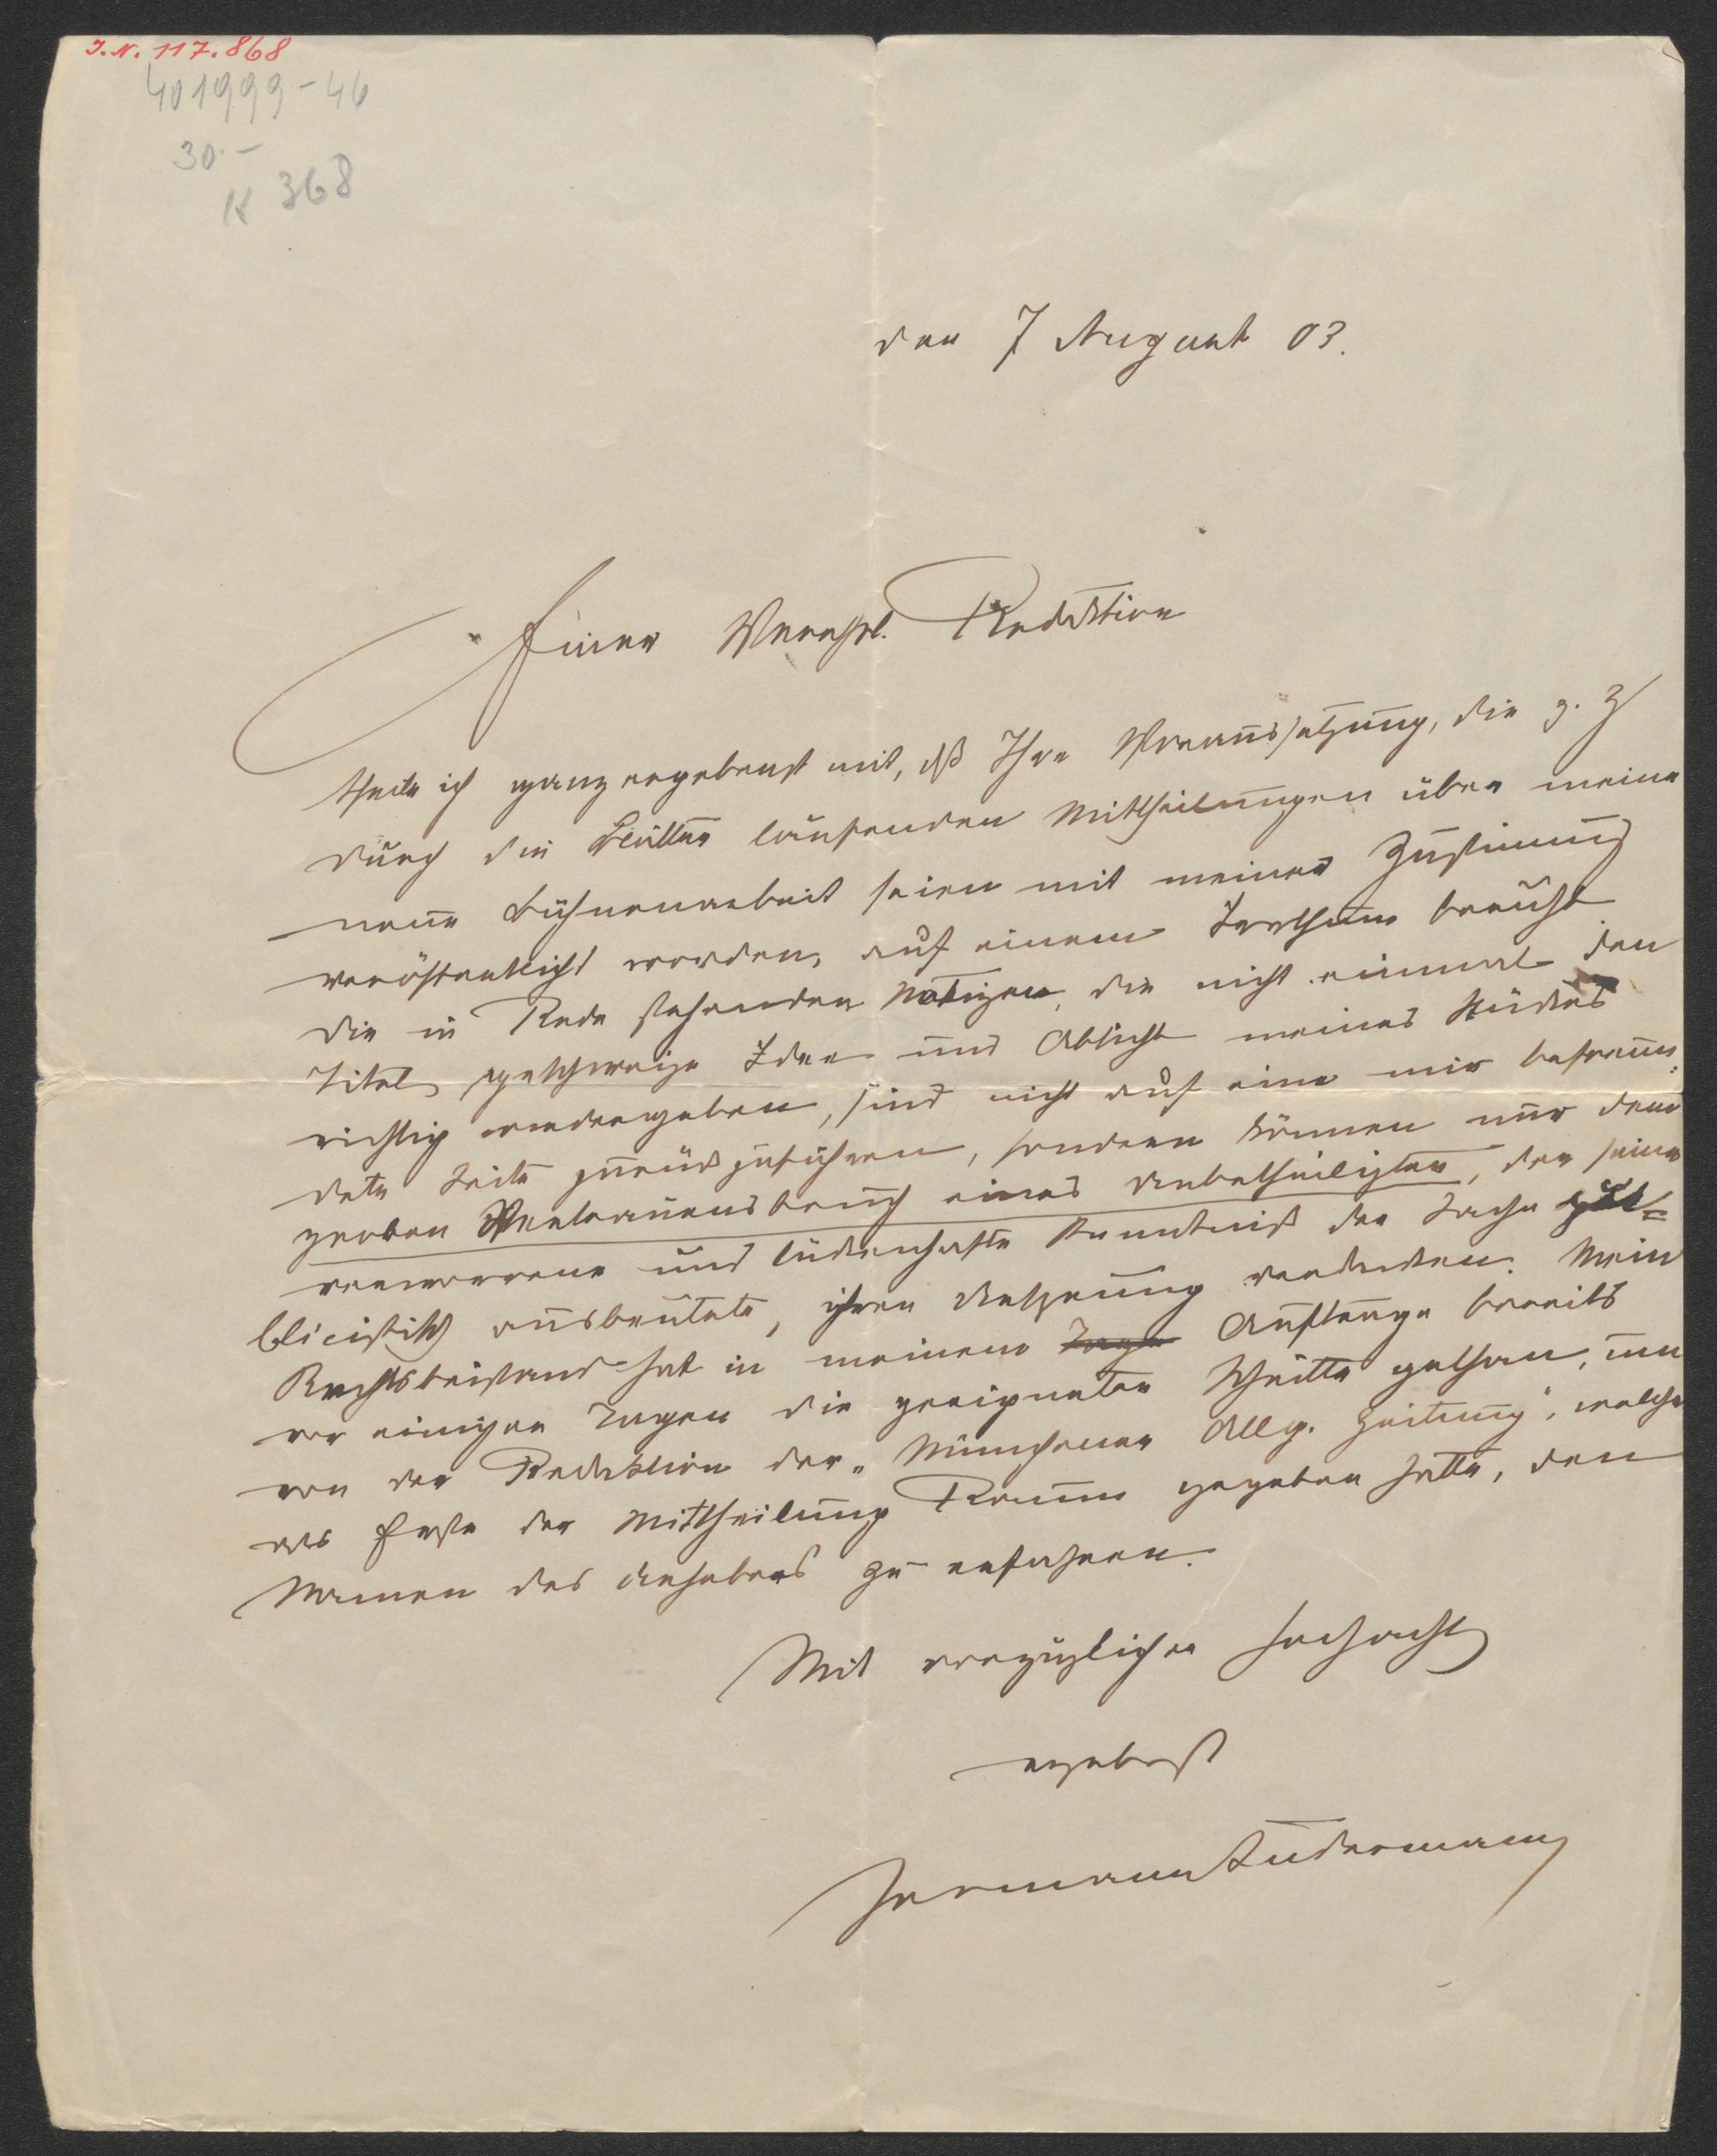 I. N. 117.868
401999-46
30.-
K 368
den 7 August 03.
Einer Verehrl. Redaktion
theile ich ganz ergebenst mit, dß Ihre Voraussetzung, die z. Z
durch die Blätter laufenden Mittheilungen über meine
neue Bühnenarbeit seien mit meiner Zustimmung
veröffentlicht worden, auf einem Irrthum beruht.
Die in Rede stehenden Notizen, die nicht einmal den
Titel, geschweige Idee und Absicht meines Stückes
richtig wiedergeben, sind nicht auf eine mir befreun-
dete Seite zurückzuführen, sondern können nur dem
groben Vertrauensbruch eines Unbetheiligten, der seine
verworrene und lückenhafte Kenntniß der Sache pu-
blicistisch ausbeutete, ihren Ursprung verdanken. Mein
Rechtsbeistand hat in meinem Auftrage bereits
vor einigen Tagen die geeigneten Schritte gethan, um
von der Redaktion der „Münchener Allg. Zeitung", welche
als Erste der Mittheilung Raum gegeben hatte, den
Namen des Urhebers zu erfahren.
Mit vorzüglicher Hochacht
ergebenst
Hermann Sudermann